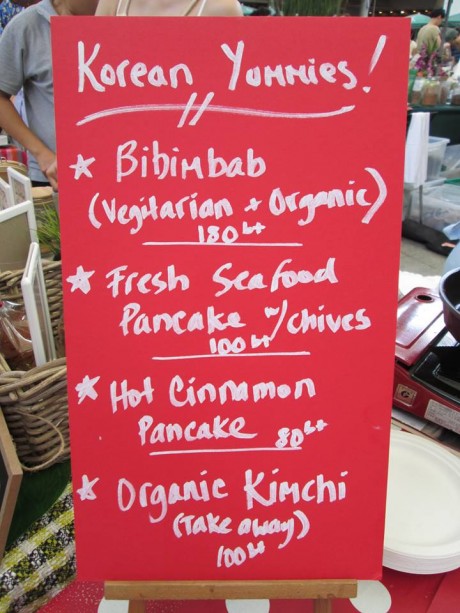 Korean Yummies!
* Bibimbab
(Vegitarian + Organic)
180
* Fresh Seafood
Pancake w/chives
100
* Hot Cinnamon
Pancake 80
* Organic Kimchi
(Take away)
100